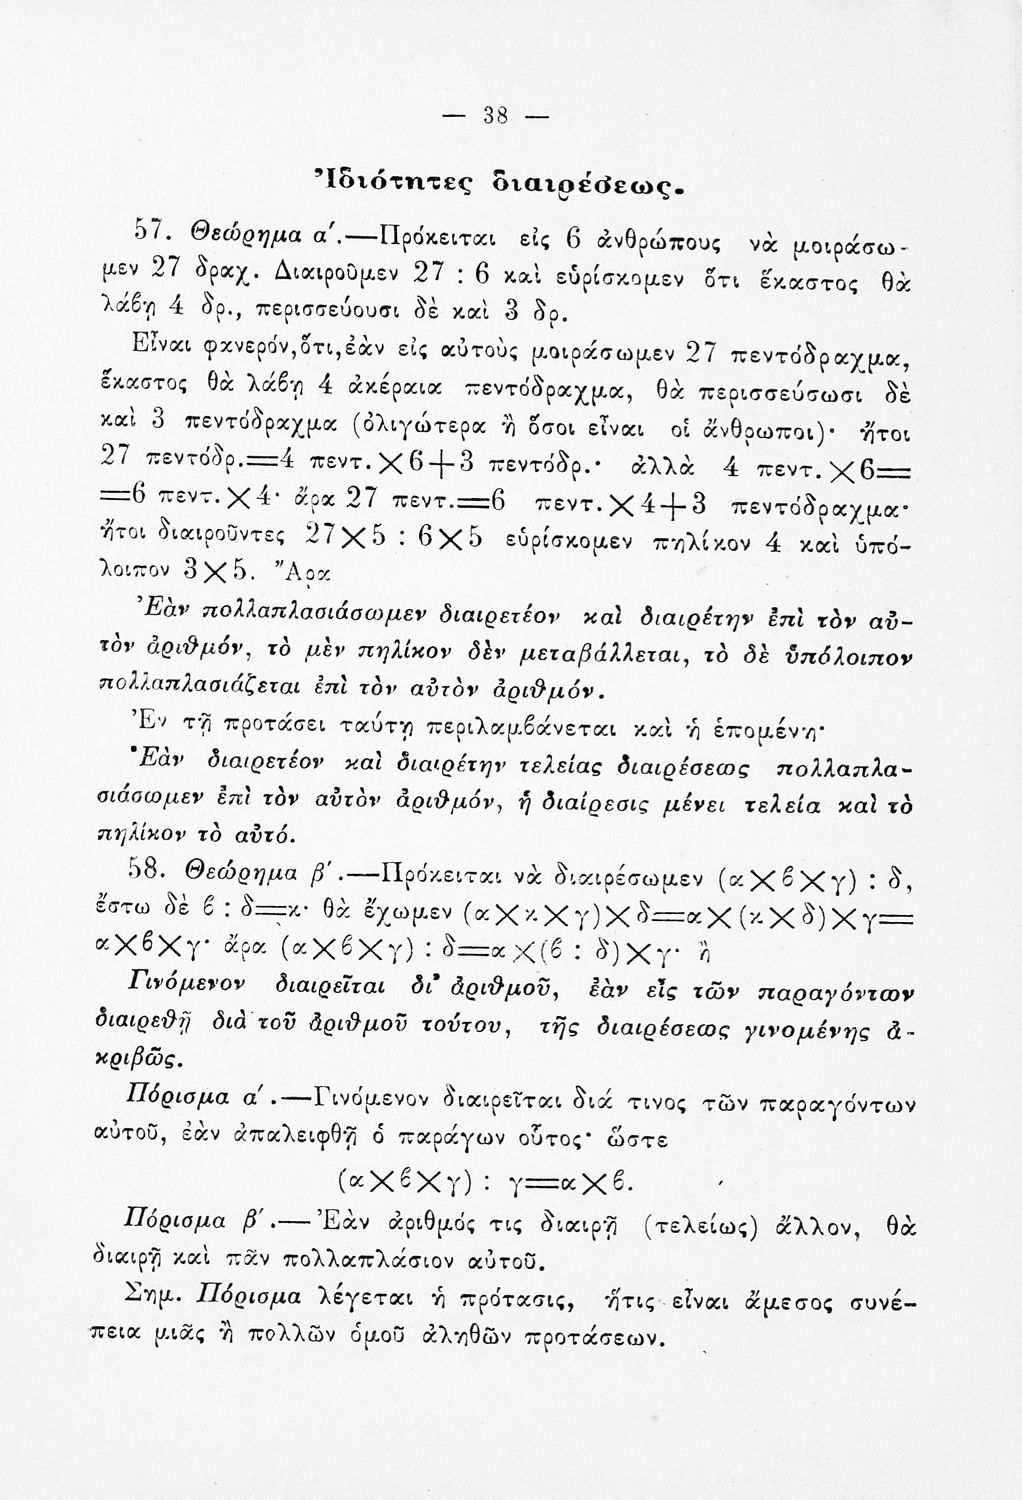 — 38 —
Ἰδιότητες διαιρέσεως.
57. Θεώρημα α΄.—Πρόκειται εἰς 6 ἀνθρώπους νὰ μοιράσω-
μεν 27 δραχ. Διαιροῦμεν 27 : 6 καὶ εὑρίσκομεν ὅτι ἕκαστος θὰ
λάβῃ 4 δρ., περισσεύουσι δὲ καὶ 3 δρ.
Εἶναι φανερόν,ὅτι,ἐὰν εἰς αὐτοὺς μοιράσωμεν 27 πεντόδραχμα,
ἕκαστος θὰ λάβῃ 4 ἀκέραια πεντόδραχμα, θὰ περισσεύσωσι δὲ
καὶ 3 πεντόδραχμα (ὀλιγώτερα ἢ ὅσοι εἶναι οἱ ἄνθρωποι)· ἤτοι
27 πεντόδρ.=4 πεντ.×6+3 πεντόδρ.· ἀλλὰ 4 πεντ.×6=
=6 πεντ.×4· ἄρα 27 πεντ.=6 πεντ.×4+3 πεντόδραχμα·
ἤτοι διαιροῦντες 27×5 : 6×5 εὑρίσκομεν πηλίκον 4 καὶ ὑπό-
λοιπον 3×5. Ἄρα
Ἐὰν πολλαπλασιάσωμεν διαιρετέον καὶ διαιρέτην ἐπὶ τὸν αὐ-
τὸν ἀριθμόν, τὸ μὲν πηλίκον δὲν μεταβάλλεται, τὸ δὲ ὑπόλοιπον
πολλαπλασιάζεται ἐπὶ τὸν αὐτὸν ἀριθμόν.
Ἐν τῇ προτάσει ταύτῃ περιλαμβάνεται καὶ ἡ ἑπομένη·
Ἐὰν διαιρετέον καὶ διαιρέτην τελείας διαιρέσεως πολλαπλα-
σιάσωμεν ἐπὶ τὸν αὐτὸν ἀριθμόν, ἡ διαίρεσις μένει τελεία καὶ τὸ
πηλίκον τὸ αὐτό.
58. Θεώρημα β΄.—Πρόκειται νὰ διαιρέσωμεν (α×β×γ) : δ,
ἔστω δὲ β : δ=κ· θὰ ἔχωμεν (α×κ×γ)×δ=α×(κ×δ)×γ=
α×β×γ· ἄρα (α×β×γ) : δ=α×(β : δ)×γ· ἢ
Γινόμενον διαιρεῖται δι' ἀριθμοῦ, ἐὰν εἷς τῶν παραγόντων
διαιρεθῇ διὰ τοῦ ἀριθμοῦ τούτου, τῆς διαιρέσεως γινομένης ἀ-
κριβῶς.
Πόρισμα α΄.—Γινόμενον διαιρεῖται διά τινος τῶν παραγόντων
αὐτοῦ, ἐὰν ἀπαλειφθῇ ὁ παράγων οὗτος· ὥστε
(α×β×γ) : γ=α×β.
Πόρισμα β΄.—Ἐὰν ἀριθμός τις διαιρῇ (τελείως) ἄλλον, θὰ
διαιρῇ καὶ πᾶν πολλαπλάσιον αὐτοῦ.
Σημ. Πόρισμα λέγεται ἡ πρότασις, ἥτις εἶναι ἄμεσος συνέ-
πεια μιᾶς ἢ πολλῶν ὁμοῦ ἀληθῶν προτάσεων.